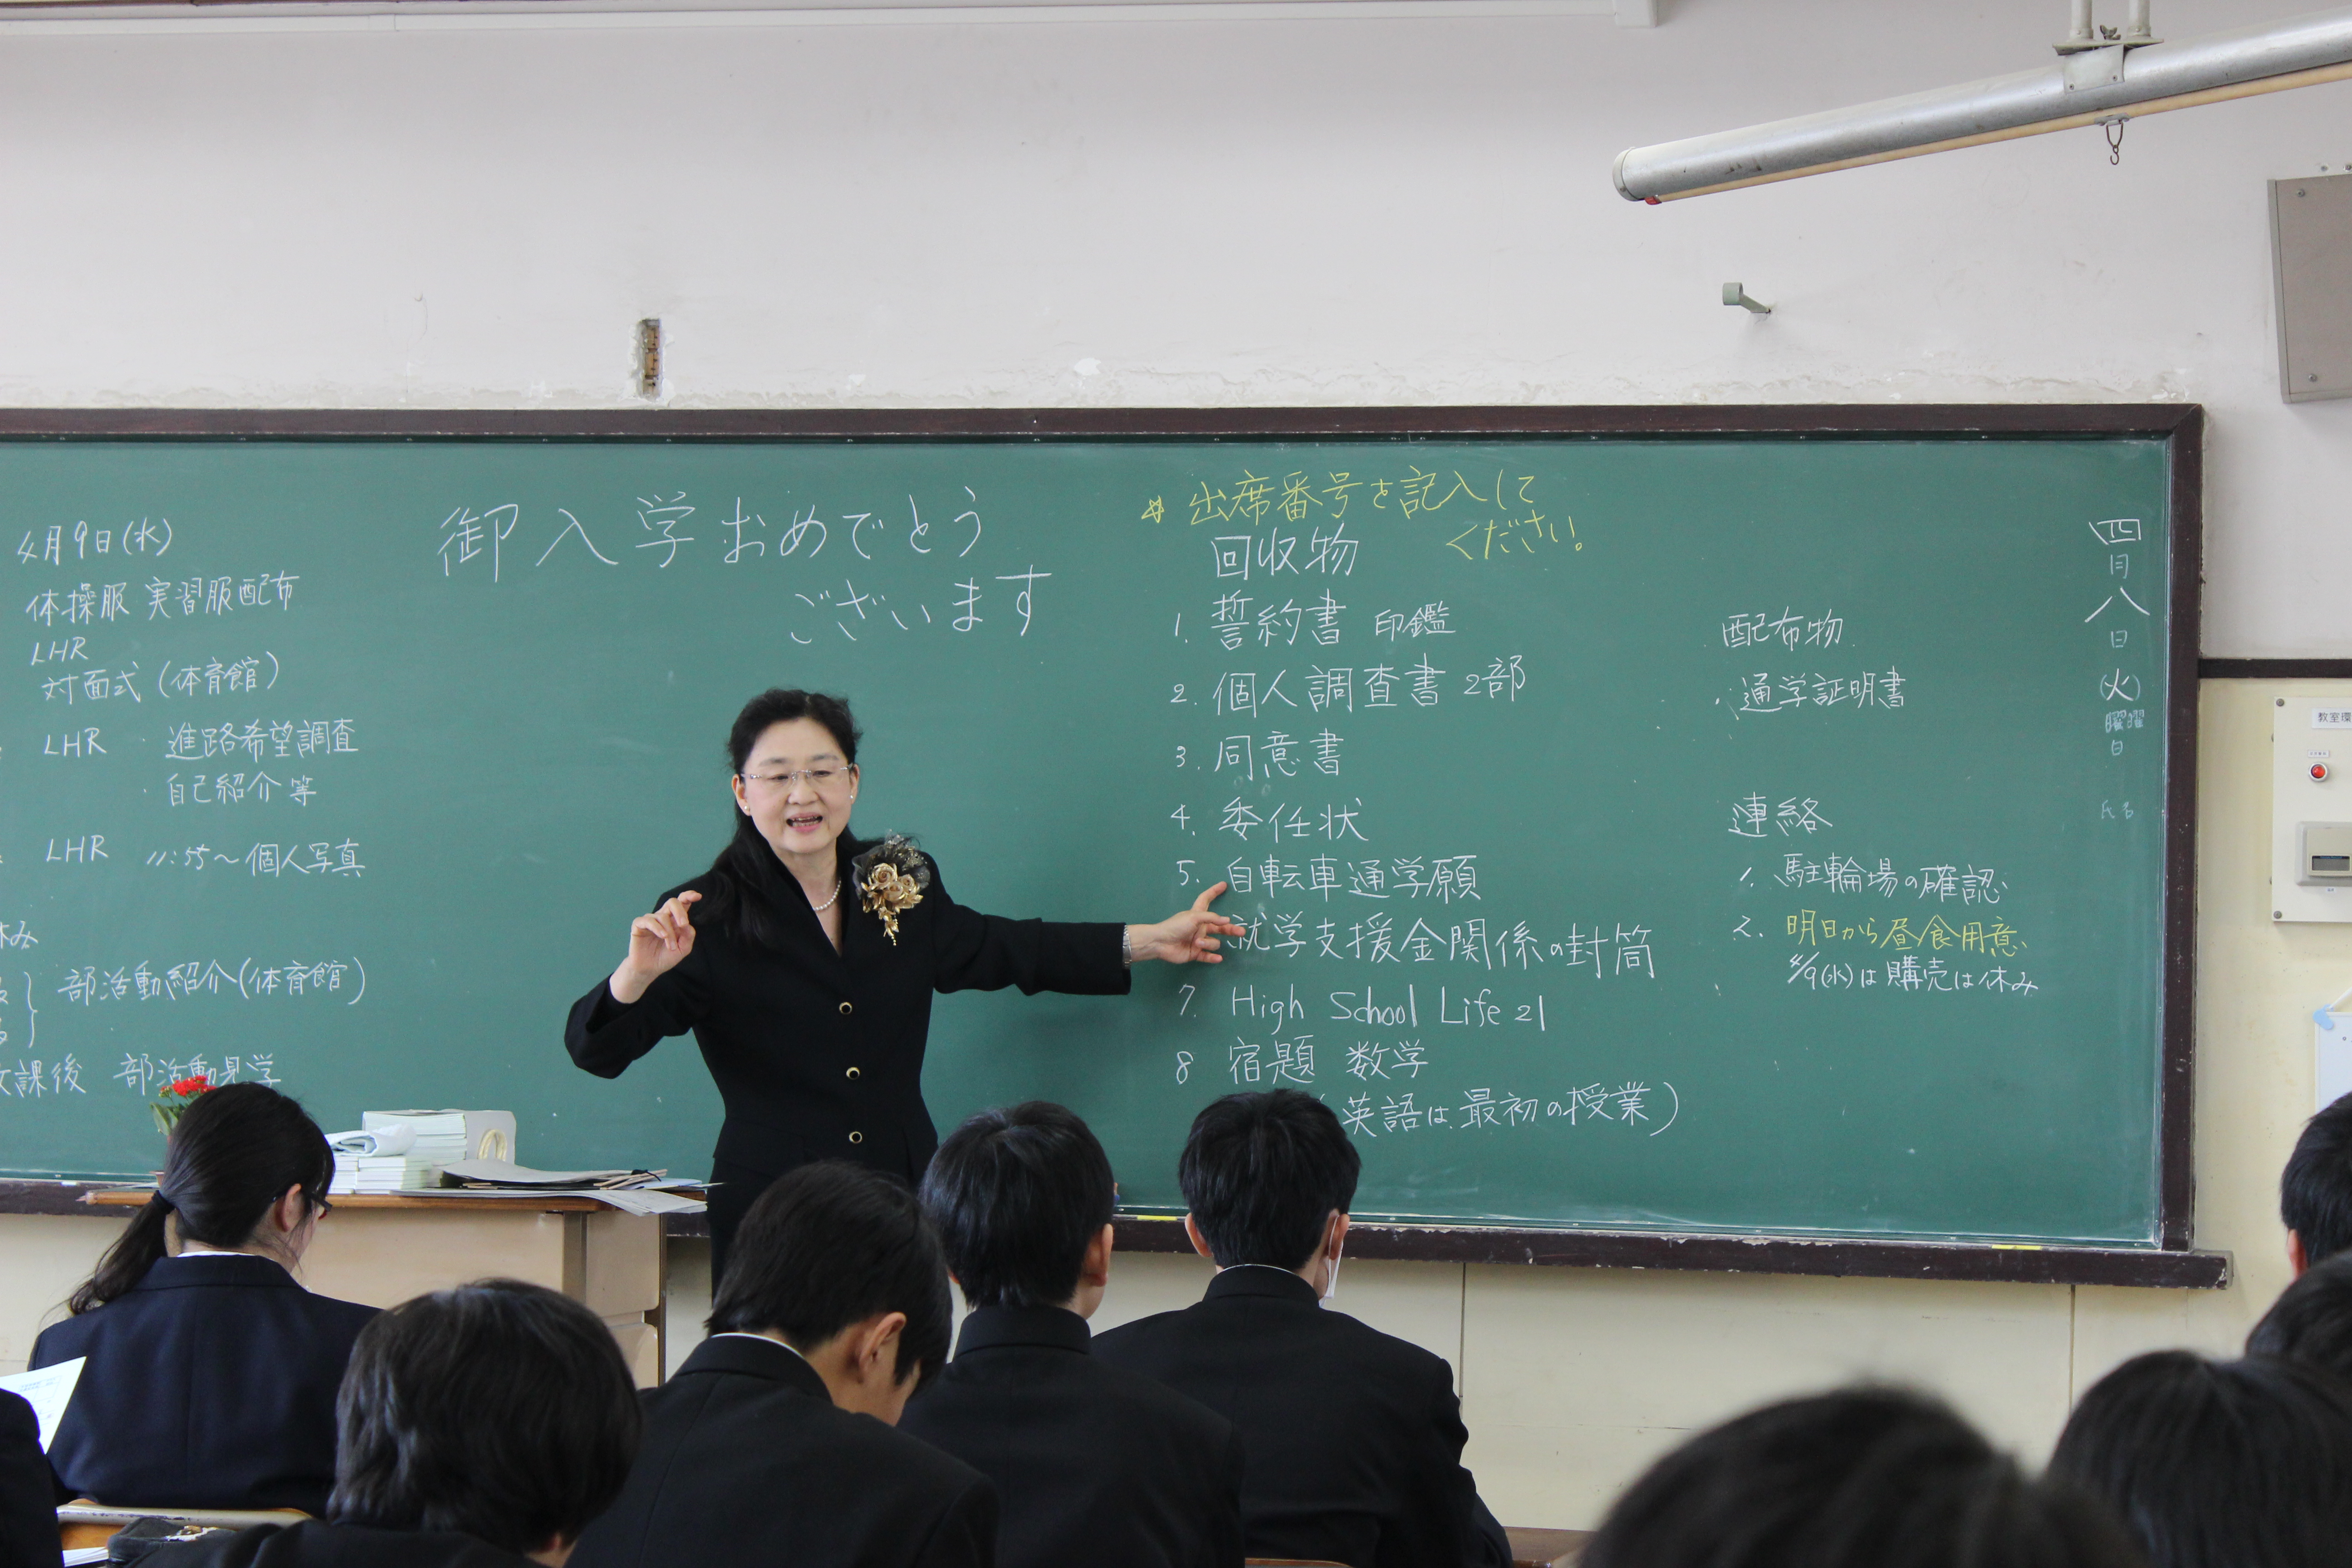 4月9日(水)
体操服 実習服配布
LHR
対面式(体育館)
LHR ・進路希望調査
・自己紹介等
LHR 11:55〜個人写真
休み
部活動紹介(体育館)
課後 部活動見学
御入学おめでとう
ございます
※出席番号を記入して
ください。
回収物
1. 誓約書 印鑑
2. 個人調査書 2部
3. 同意書
4. 委任状
5. 自転車通学願
就学支援金関係の封筒
7. High School Life 21
8 宿題 数学
(英語は最初の授業)
配布物
・通学証明書
連絡
1. 駐輪場の確認
2. 明日から昼食用意
4/9(水)は購売は休み
四月八日(火)曜日
氏名
教室環